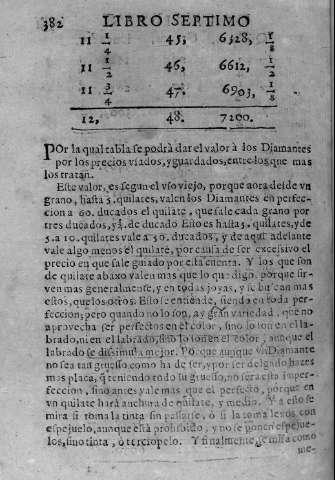 382 LIBRO SEPTIMO
11 1/4 45, 6328, 1/8
11 1/2 46, 6612, 1/2
11 3/4 47. 6903, 1/8
12, 48. 7200.
Por la qual tabla se podrà dar el valor à los Diamantes
por los precios vsados, y guardados, entre los que mas
los tratan.
Este valor, es segun el vso viejo, porque aora desde vn
grano, hasta 5. quilates, valen los Diamantes en perfec-
cion a 60. ducados el quilate, que sale cada grano por
tres ducados, y de ducado Esto es hasta 5. quilates, y de
5. a 10. quilates vale a 50. ducados, y de aqui adelante
vale algo menos el quilate, por causa de ser excessivo el
precio en que sale guiado por esta cuenta. Y los que son
de quilate abaxo valen mas que lo que digo, porque sir-
ven mas generalmente, y en todas joyas, y se buscan mas
estos, que los otros. Esto se entiende, siendo en toda per-
feccion; pero quando no lo son, ay gran variedad, que no
aprovecha ser perfectos en el color, sino lo son en el la-
brado, ni en el labrado, sino lo son en el color, aunque el
labrado se dissimula mejor. Porque aunque vn Diamante
no sea tan gruesso como ha de ser, y por ser delgado hazer
mas placa, q̃ teniendo todo su gruesso, no serà esto imper-
feccion, sino antes vale mas que el perfecto, porque en
vn quilate harà anchura de quilate, y medio. a esto se
mira si toma la tinta sin passarse, ò si la toma con
espejuelo, aunque està prohibido, y no se ponen espejue-
los, sino tinta, ò terciopelo. Y finalmente, se mira como
me-